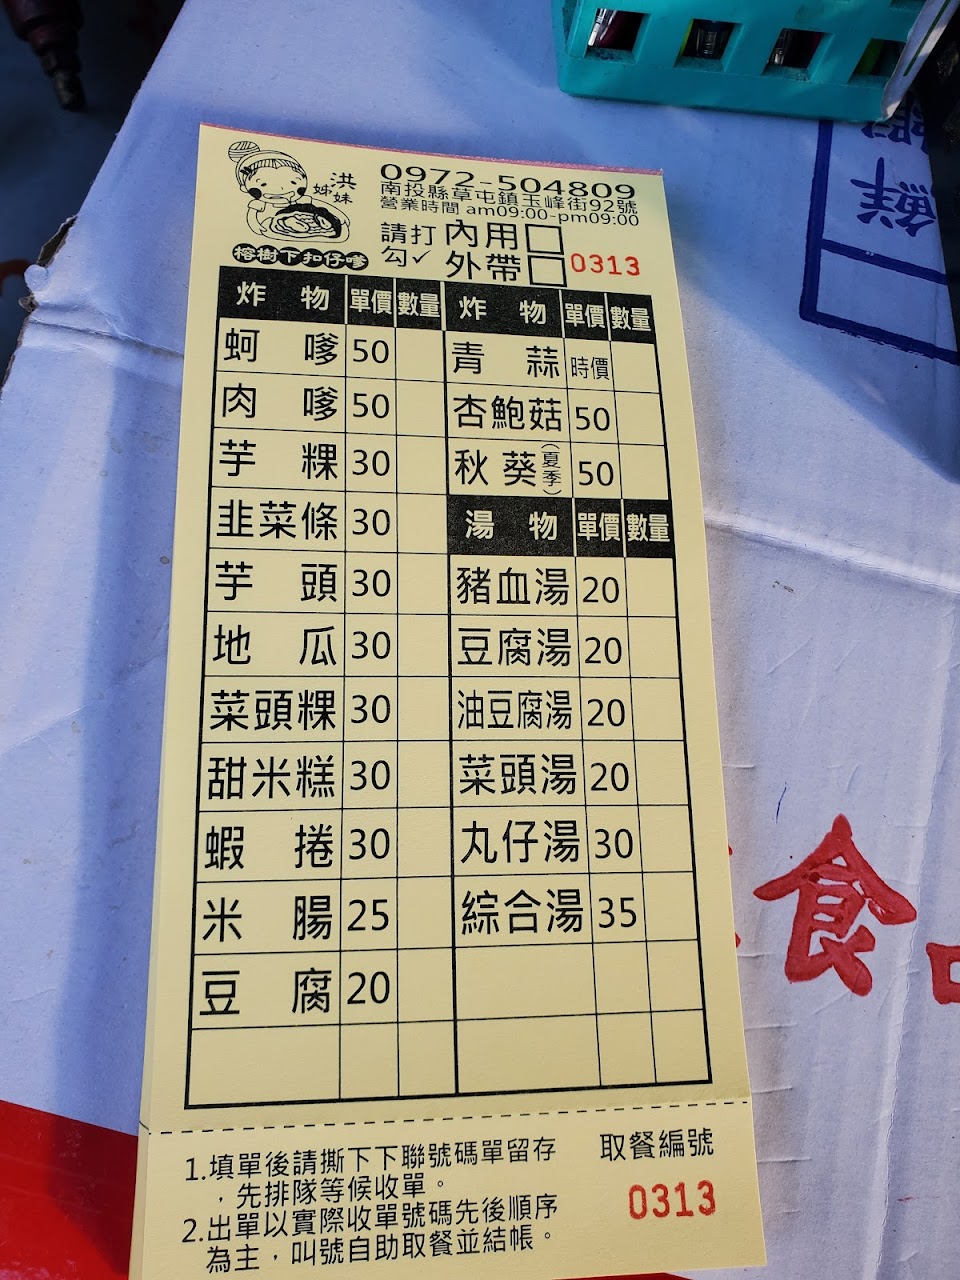 洪
姊妹
榕樹下扣仔嗲
0972-504809
南投縣草屯鎮玉峰街92號
營業時間 am09:00-pm09:00
請打勾✓
內用□
外帶□
0313
炸物 單價 數量
蚵嗲 50
肉嗲 50
芋粿 30
韭菜條 30
芋頭 30
地瓜 30
菜頭粿 30
甜米糕 30
蝦捲 30
米腸 25
豆腐 20
炸物 單價 數量
青蒜 時價
杏鮑菇 50
秋葵(夏季) 50
湯物 單價 數量
豬血湯 20
豆腐湯 20
油豆腐湯 20
菜頭湯 20
丸仔湯 30
綜合湯 35
1.填單後請撕下下聯號碼單留存
，先排隊等候收單。
2.出單以實際收單號碼先後順序
為主，叫號自助取餐並結帳。
取餐編號
0313
食
鮮